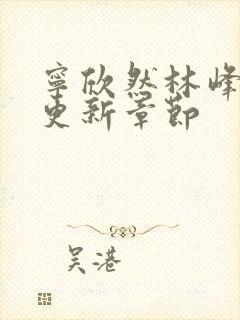 寧欣然林峰
更新章節
吴港